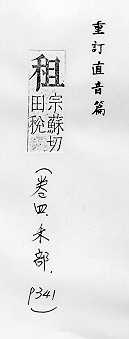 重訂直音篇
租
宗蘇切
田稅
(卷四.禾部.
P341)